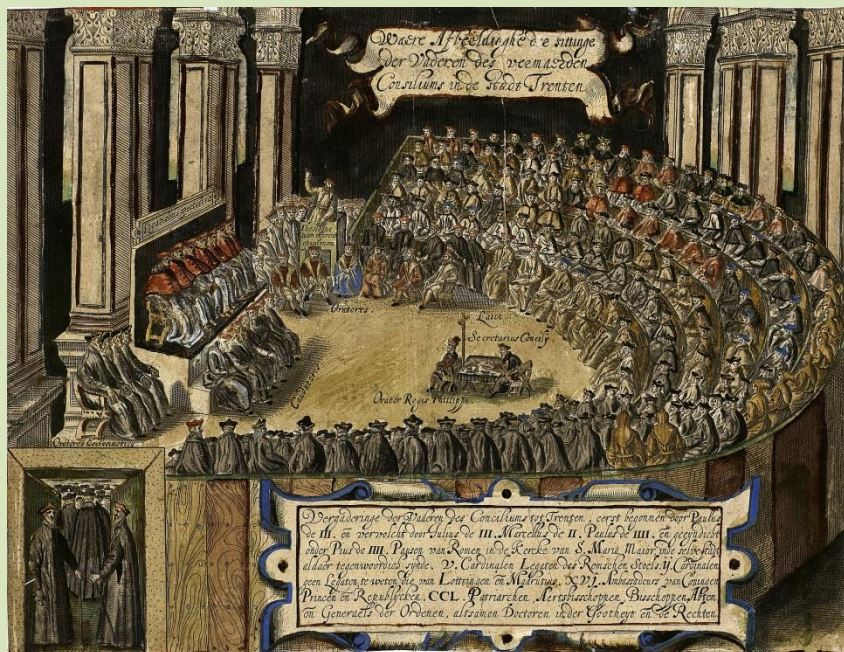 Waere Afbeeldinghe d'e sittinge
der Vaderen des vermaerden
Consiliums in de stadt Trenten
Theologus
Oratores.
Laici
Secretarius Concilÿ
Cardinales
Orator Regis Philippi
Oratores Ecclesiastici
Vergaderinge der Vaderen des Conciliums tot Trenten, eerst begonnen door Paulus
de III. en vervolcht door Julius de II. Marcellus de II. Paulus de IIII. en geeyndicht
onder Pius de IIII. Pausen van Romen, in de Kercke van S. Maria Maior, inde selve stadt
aldaer tegenwoordich synde. V. Cardinalen Legaten des Roomschen Stoels. ij. Cardinalen
geen Legaten, te weten die van Lottringen en Madrutius. XVI. Ambassadeurs van Coningen
Princen en Republycken. CCL. Patriarchen Aertsbisschoppen, Bisschoppen Abten,
en Generaels der Ordenen, altsamen Doctoren in der Gootheyt en de Rechten.